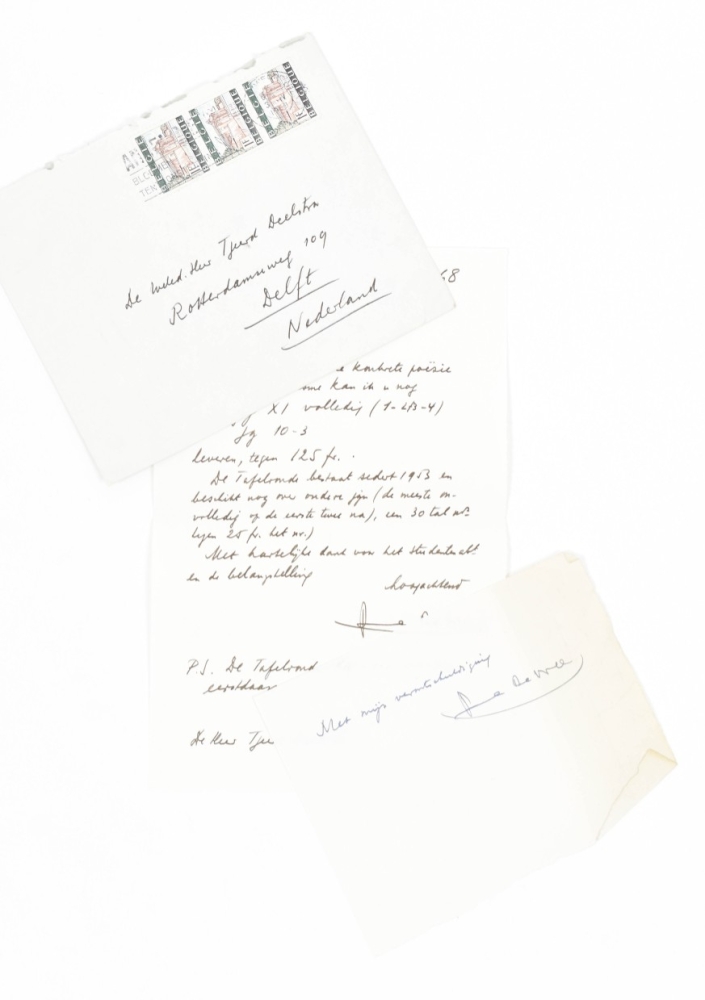 BELGIQUE BELGIE
BELGIQUE BELGIE
BELGIQUE BELGIE
De Weled. Heer Tjeerd Deelstra
Rotterdamseweg 109
Delft
Nederland
68
konkrete poësie
kan ik u nog
XI volledig (1-2/3-4)
Jg 10-3
leveren, tegen 125 fr.
De Tafelronde bestaat sedert 1953 en
beschikt nog over andere jgn (de meeste on-
volledig op de eerste twee na), een 30 tal nrs
tegen 25 fr. het nr.)
Met hartelijke dank voor het studentenblad
en de belangstelling
hoogachtend
P.S. De Tafelrond
eerstdaar
De Heer Tjee
Met mijn verontschuldiging